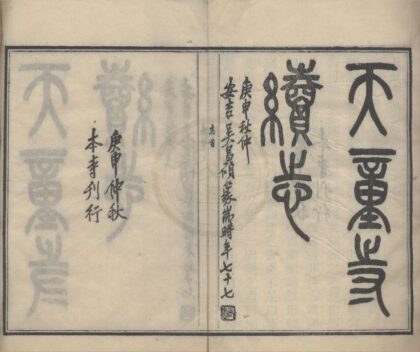 天童寺
續志
庚申秋仲
安吉吳昌碩篆耑時年七十七
志首
庚申仲秋
本寺刊行